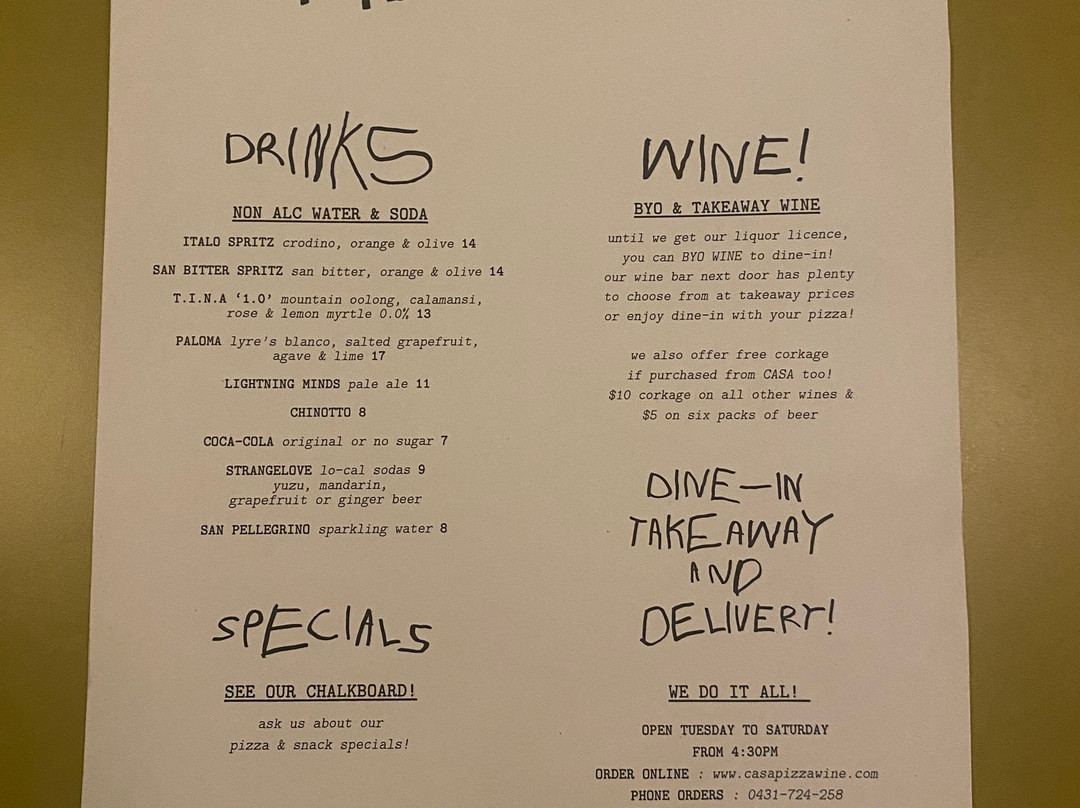 DRINKS
NON ALC WATER & SODA
ITALO SPRITZ crodino, orange & olive 14
SAN BITTER SPRITZ san bitter, orange & olive 14
T.I.N.A ‘1.0’ mountain oolong, calamansi,
rose & lemon myrtle 0.0% 13
PALOMA lyre's blanco, salted grapefruit,
agave & lime 17
LIGHTNING MINDS pale ale 11
CHINOTTO 8
COCA-COLA original or no sugar 7
STRANGELOVE lo-cal sodas 9
yuzu, mandarin,
grapefruit or ginger beer
SAN PELLEGRINO sparkling water 8
SPECIALS
SEE OUR CHALKBOARD!
ask us about our
pizza & snack specials!
WINE!
BYO & TAKEAWAY WINE
until we get our liquor licence,
you can BYO WINE to dine-in!
our wine bar next door has plenty
to choose from at takeaway prices
or enjoy dine-in with your pizza!
we also offer free corkage
if purchased from CASA too!
$10 corkage on all other wines &
$5 on six packs of beer
DINE-IN
TAKEAWAY
AND
DELIVERY!
WE DO IT ALL!
OPEN TUESDAY TO SATURDAY
FROM 4:30PM
ORDER ONLINE : www.casapizzawine.com
PHONE ORDERS : 0431-724-258